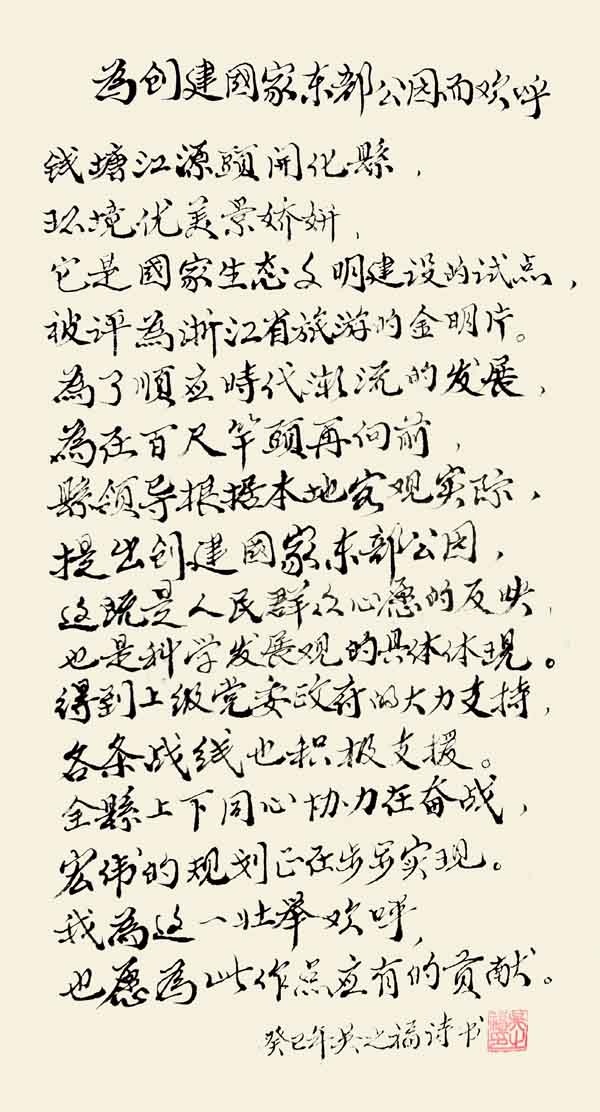 為创建國家东部公园而欢呼
钱塘江源頭開化縣，
环境优美景娇妍，
它是國家生态文明建设的试点，
被评為浙江省旅游的金明片。
為了順应時代潮流的发展，
為在百尺竿頭再向前，
縣领导根据本地客观实际，
提出创建國家东部公园，
这既是人民群众心愿的反映，
也是科学发展观的具体体現。
得到上级党委政府的大力支持，
各条战线也积极支援。
全縣上下同心协力在奋战，
宏伟的规划正在步步实现。
我為这一壮举欢呼，
也愿為此作点应有的贡献。
癸巳年吴之福诗书